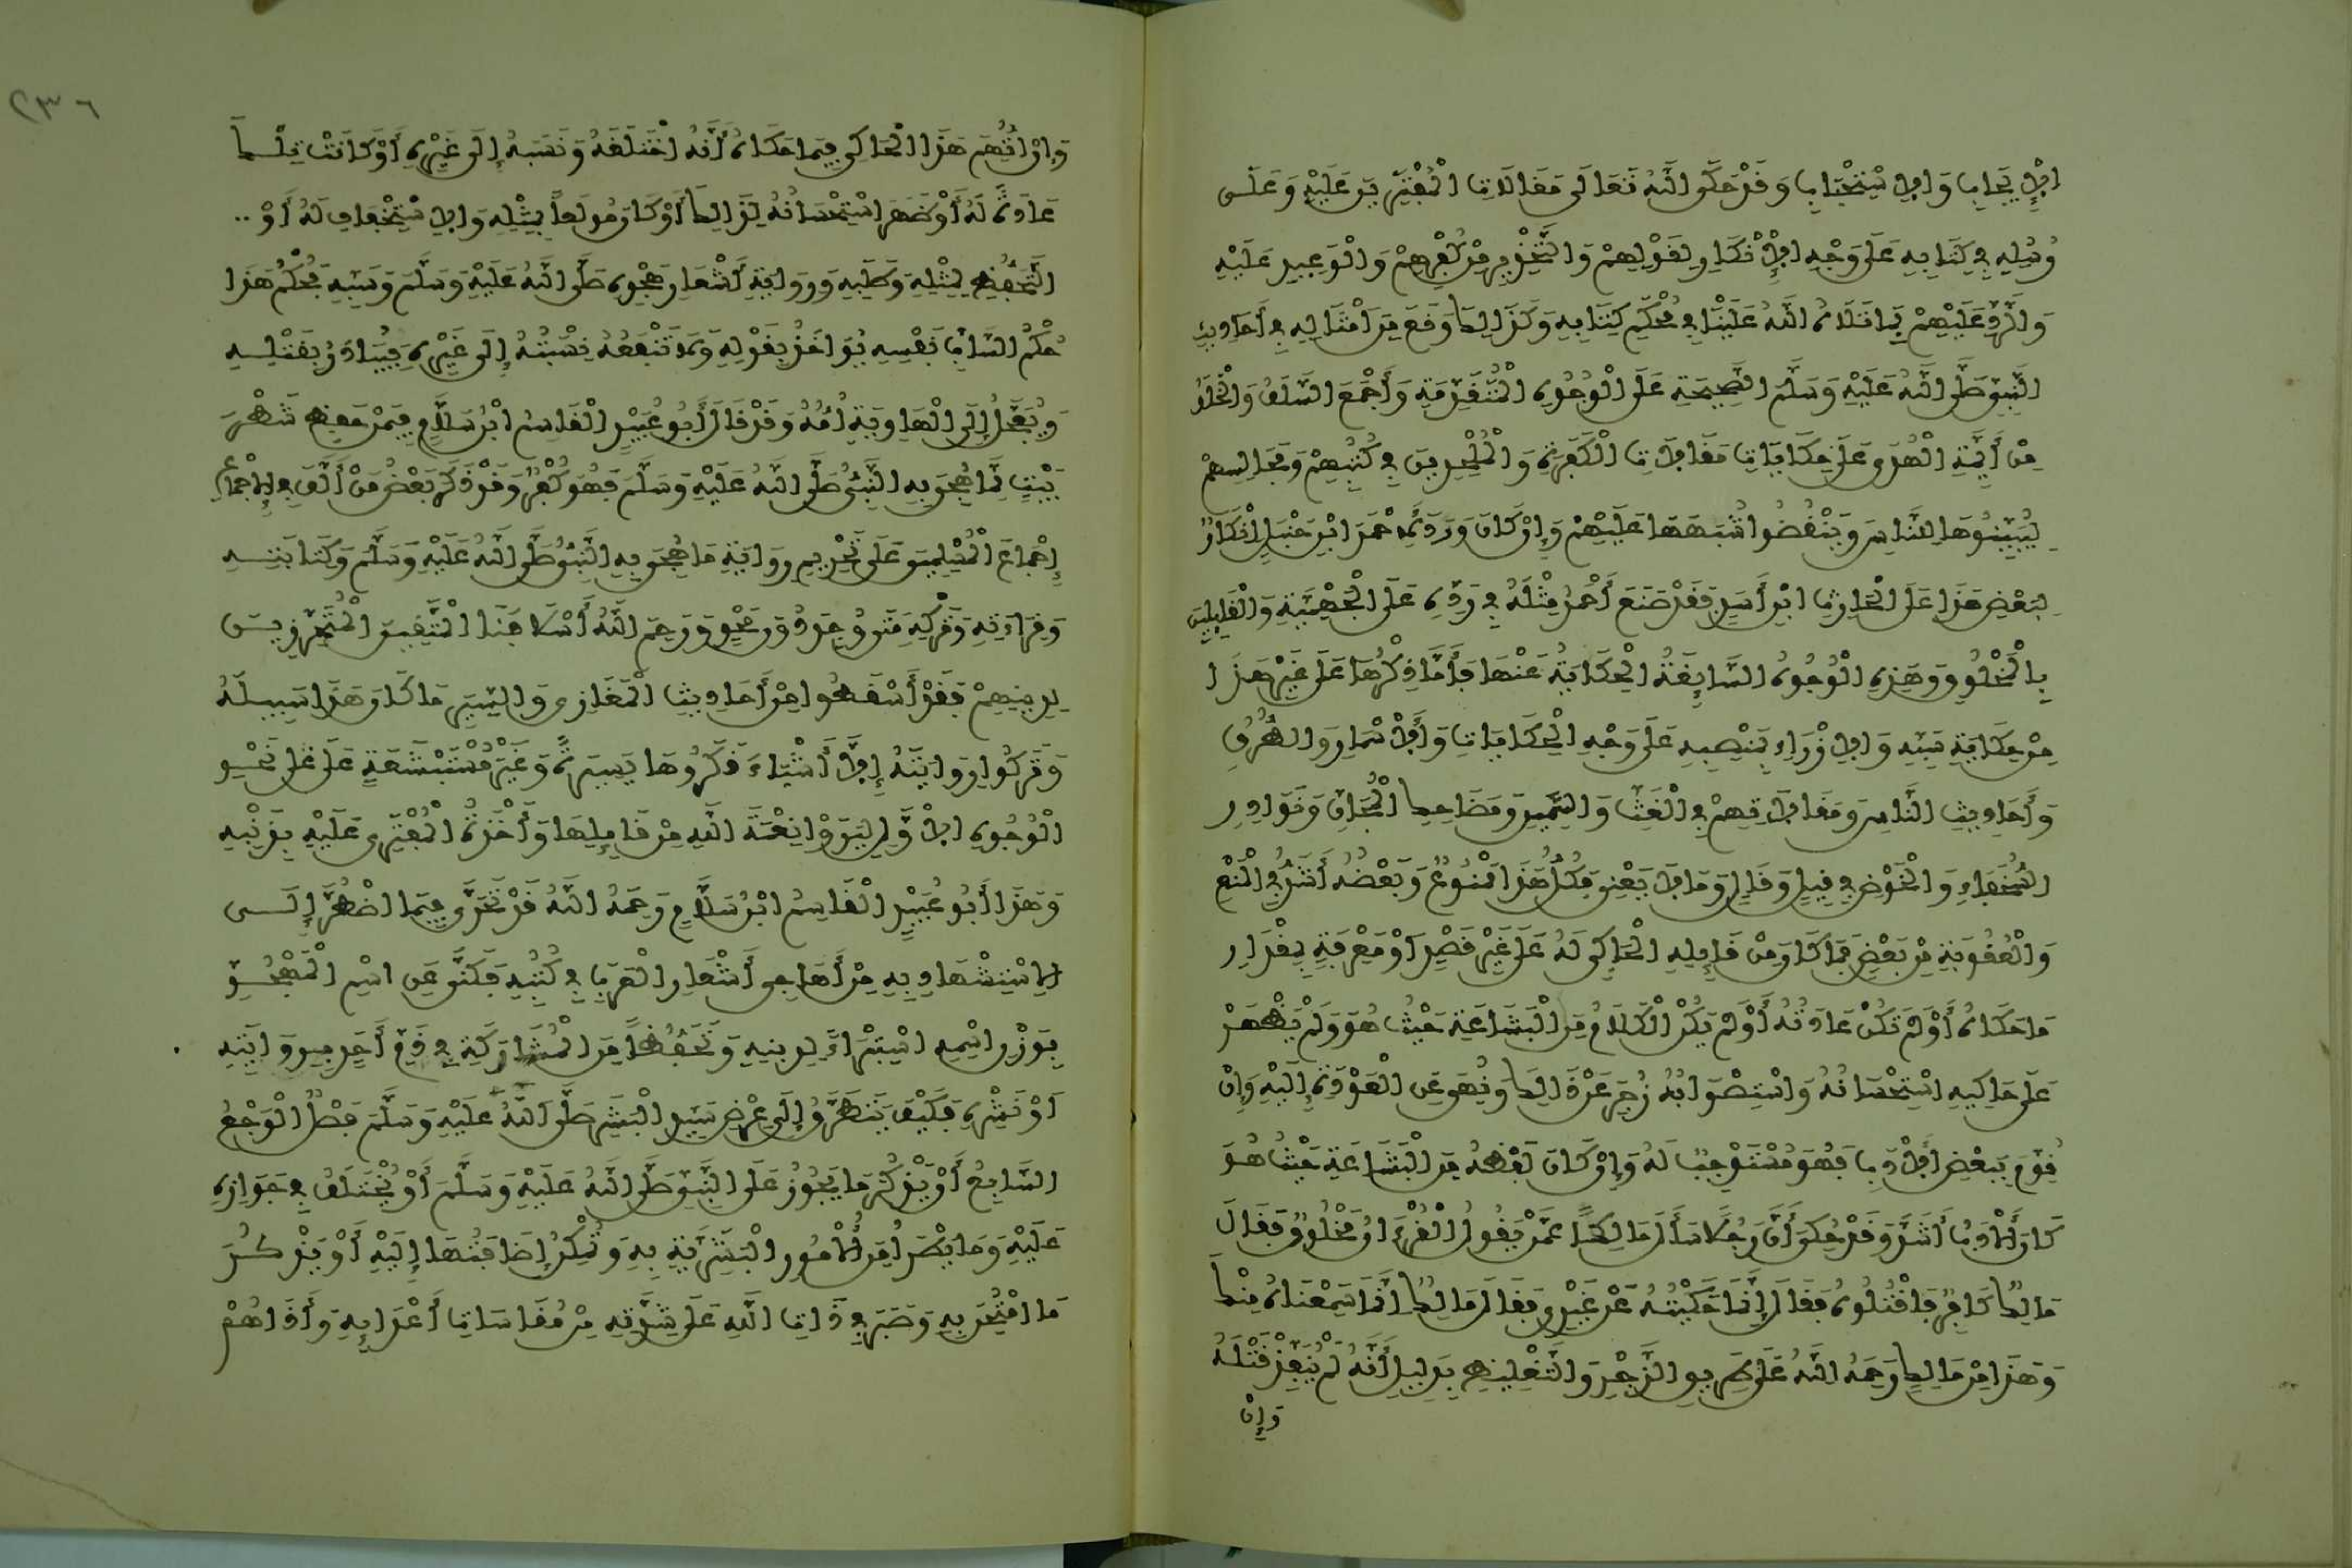 الإيجاب والاستحباب وقد حكى الله تعالى مقالات المفترين عليه وعلى
رسله في كتابه على وجه الإنكار لقولهم والتحذير من كفرهم والوعيد عليه
والرد عليهم بما تلاه الله علينا في محكم كتابه وكذلك وقع من أمثاله في أحاديث
النبي صلى الله عليه وسلم الصحيحة على الوجوه المتقدمة وأجمع السلف والخلف
من أئمة الهدى على حكايات مقالات الكفرة والملحدين في كتبهم ومجالسهم
ليبينوها للناس وينقضوا شبهها عليهم وإن كان ورد لأحمد ابن حنبل إنكار
لبعض هذا على الحارث ابن أسد فقد صنع أحمد مثله في رده على الجهمية والقايلين
بالمخلوق وهذه الوجوه السايغة الحكاية عنها فأما ذكرها على غير هذا
من حكاية سبه والازراء بمنصبه على وجه الحكايات والأسمار والطرف
وأحاديث الناس ومقالاتهم في الغث والسمين ومضاحك المجان ونوادر
السخفاء والخوض في قيل وقال وما لا يعني فكل هذا ممنوع وبعضه أشد في المنع
والعقوبة من بعض فما كان من قايله الحاكي له على غير قصد أو معرفة بمقدار
ما حكاه أو لم تكن عادته أو لم يكن الكلام من البشاعة حيث هو ولم يظهر
على حاكيه استحسانه واستصوابه زجر عن ذلك ونهي عن العودة إليه وإن
قوم ببعض الأدب فهو مستوجب له وإن كان لفظه من البشاعة حيث هو
كان الأدب أشد وقد حكي أن رجلا سأل مالكا عمن يقول القرءان مخلوق فقال
مالك كافر فاقتلوه فقال إنما حكيته عن غيري فقال مالك إنما سمعناه منك
وهذا من مالك رحمه الله على طريق الزجر والتغليظ بدليل أنه لم ينفذ قتله
وإن
٢٣٦
وإن اتهم هذا الحاكي فيما حكاه أنه اختلقه ونسبه إلى غيره أو كانت تلك
عادة له أو ظهر استحسانه لذلك أو كان مولعا بمثله والاستخفاف له أو ..
التحفظ لمثله وطلبه ورواية أشعار هجوه صلى الله عليه وسلم وسبه فحكم هذا
حكم الساب نفسه يواخذ بقوله ولا تنفعه نسبته إلى غيره فيبادر بقتله
ويعجل إلى الهاوية أمه وقد قال أبو عبيد القاسم ابن سلام فيمن حفظ شطر
بيت مما هجي به النبي صلى الله عليه وسلم فهو كفر وقد ذكر بعض من ألف في الإجماع
إجماع المسلمين على تحريم رواية ما هجي به النبي صلى الله عليه وسلم وكتابته
وقراءته وتركه متى وجد دون محو ورحم الله أسلافنا المتقين المتحرزين
لدينهم فقد أسقطوا من أحاديث المغازي والسير ما كان هذا سبيله
وتركوا روايته إلا أشياء ذكروها يسيرة وغير مستبشعة على نحو
الوجوه الاول ليروا نقمة الله من قايلها وأخذة المفتري عليه بذنبه
وهذا أبو عبيد القاسم ابن سلام رحمه الله قد تحرى فيما اضطر إلى
الاستشهاد به من أهاجي أشعار العرب في كتبه فكنى عن اسم المهجو
بوزن اسمه استبراء لدينه وتحفظا من المشاركة في ذم أحد بروايته
أو نشره فكيف يتطرق إلى عرض سيد البشر صلى الله عليه وسلم فصل الوجه
السابع أو يذكر ما يجوز على النبي صلى الله عليه وسلم أو يختلف في جوازه
عليه وما يطرأ من الأمور البشرية به وتمكن إضافتها إليه أو يذكر
ما امتحن به وصبر في ذات الله على شدته من مقاسات أعدايه وأذاهم